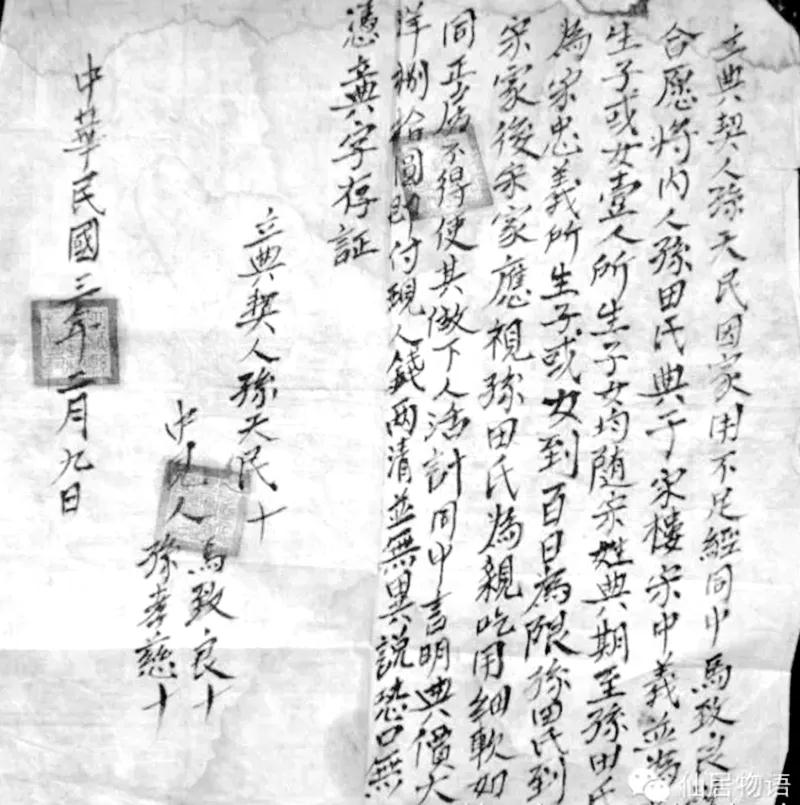 立典契人孫天民因家用不足經同中馬致良
合愿將内人孫田氏典于宋樓宋中義並為
生子或女壹人所生子女均随宋姓典期至孫田氏
為宋忠義所生子或女到百日為限孫田氏到
宋家後宋家應視孫田氏為親吃用細軟如
同正房不得使其做下人活計同中言明典價大
洋捌拾圓即付現人錢两清並無異説恐口無
憑立典字存証
立典契人孫天民十
中見人馬致良十
孫孝慈十
中華民國三年二月九日
仙居物语